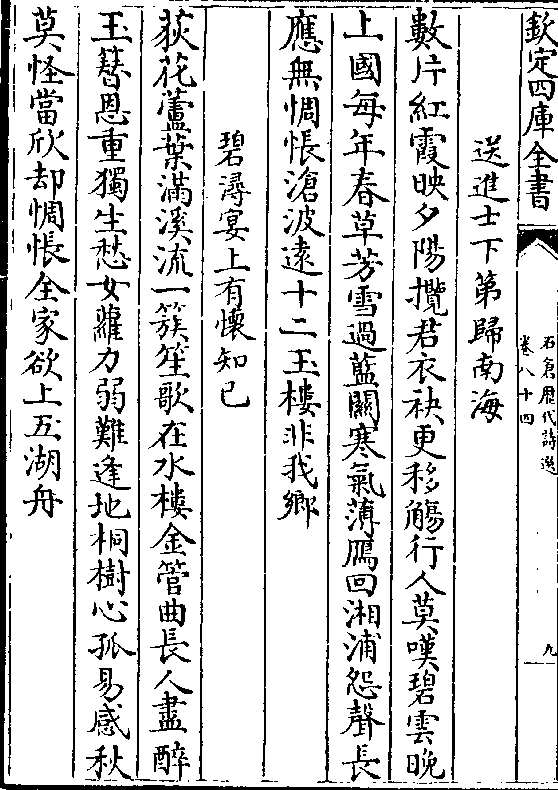 欽定四庫全書
石倉歷代詩選
卷八十四
九
送進士下第歸南海
數片紅霞映夕陽攬君衣袂更移觴行人莫嘆碧雲晚
上國每年春草芳雪過藍關寒氣薄鴈回湘浦怨聲長
應無惆悵滄波遠十二玉樓非我鄉
碧潯宴上有懷知已
荻花蘆葉滿溪流一簇笙歌在水樓金管曲長人盡醉
玉簪恩重獨生愁女蘿力弱難逢地桐樹心孤易感秋
莫怪當欣却惆悵全家欲上五湖舟